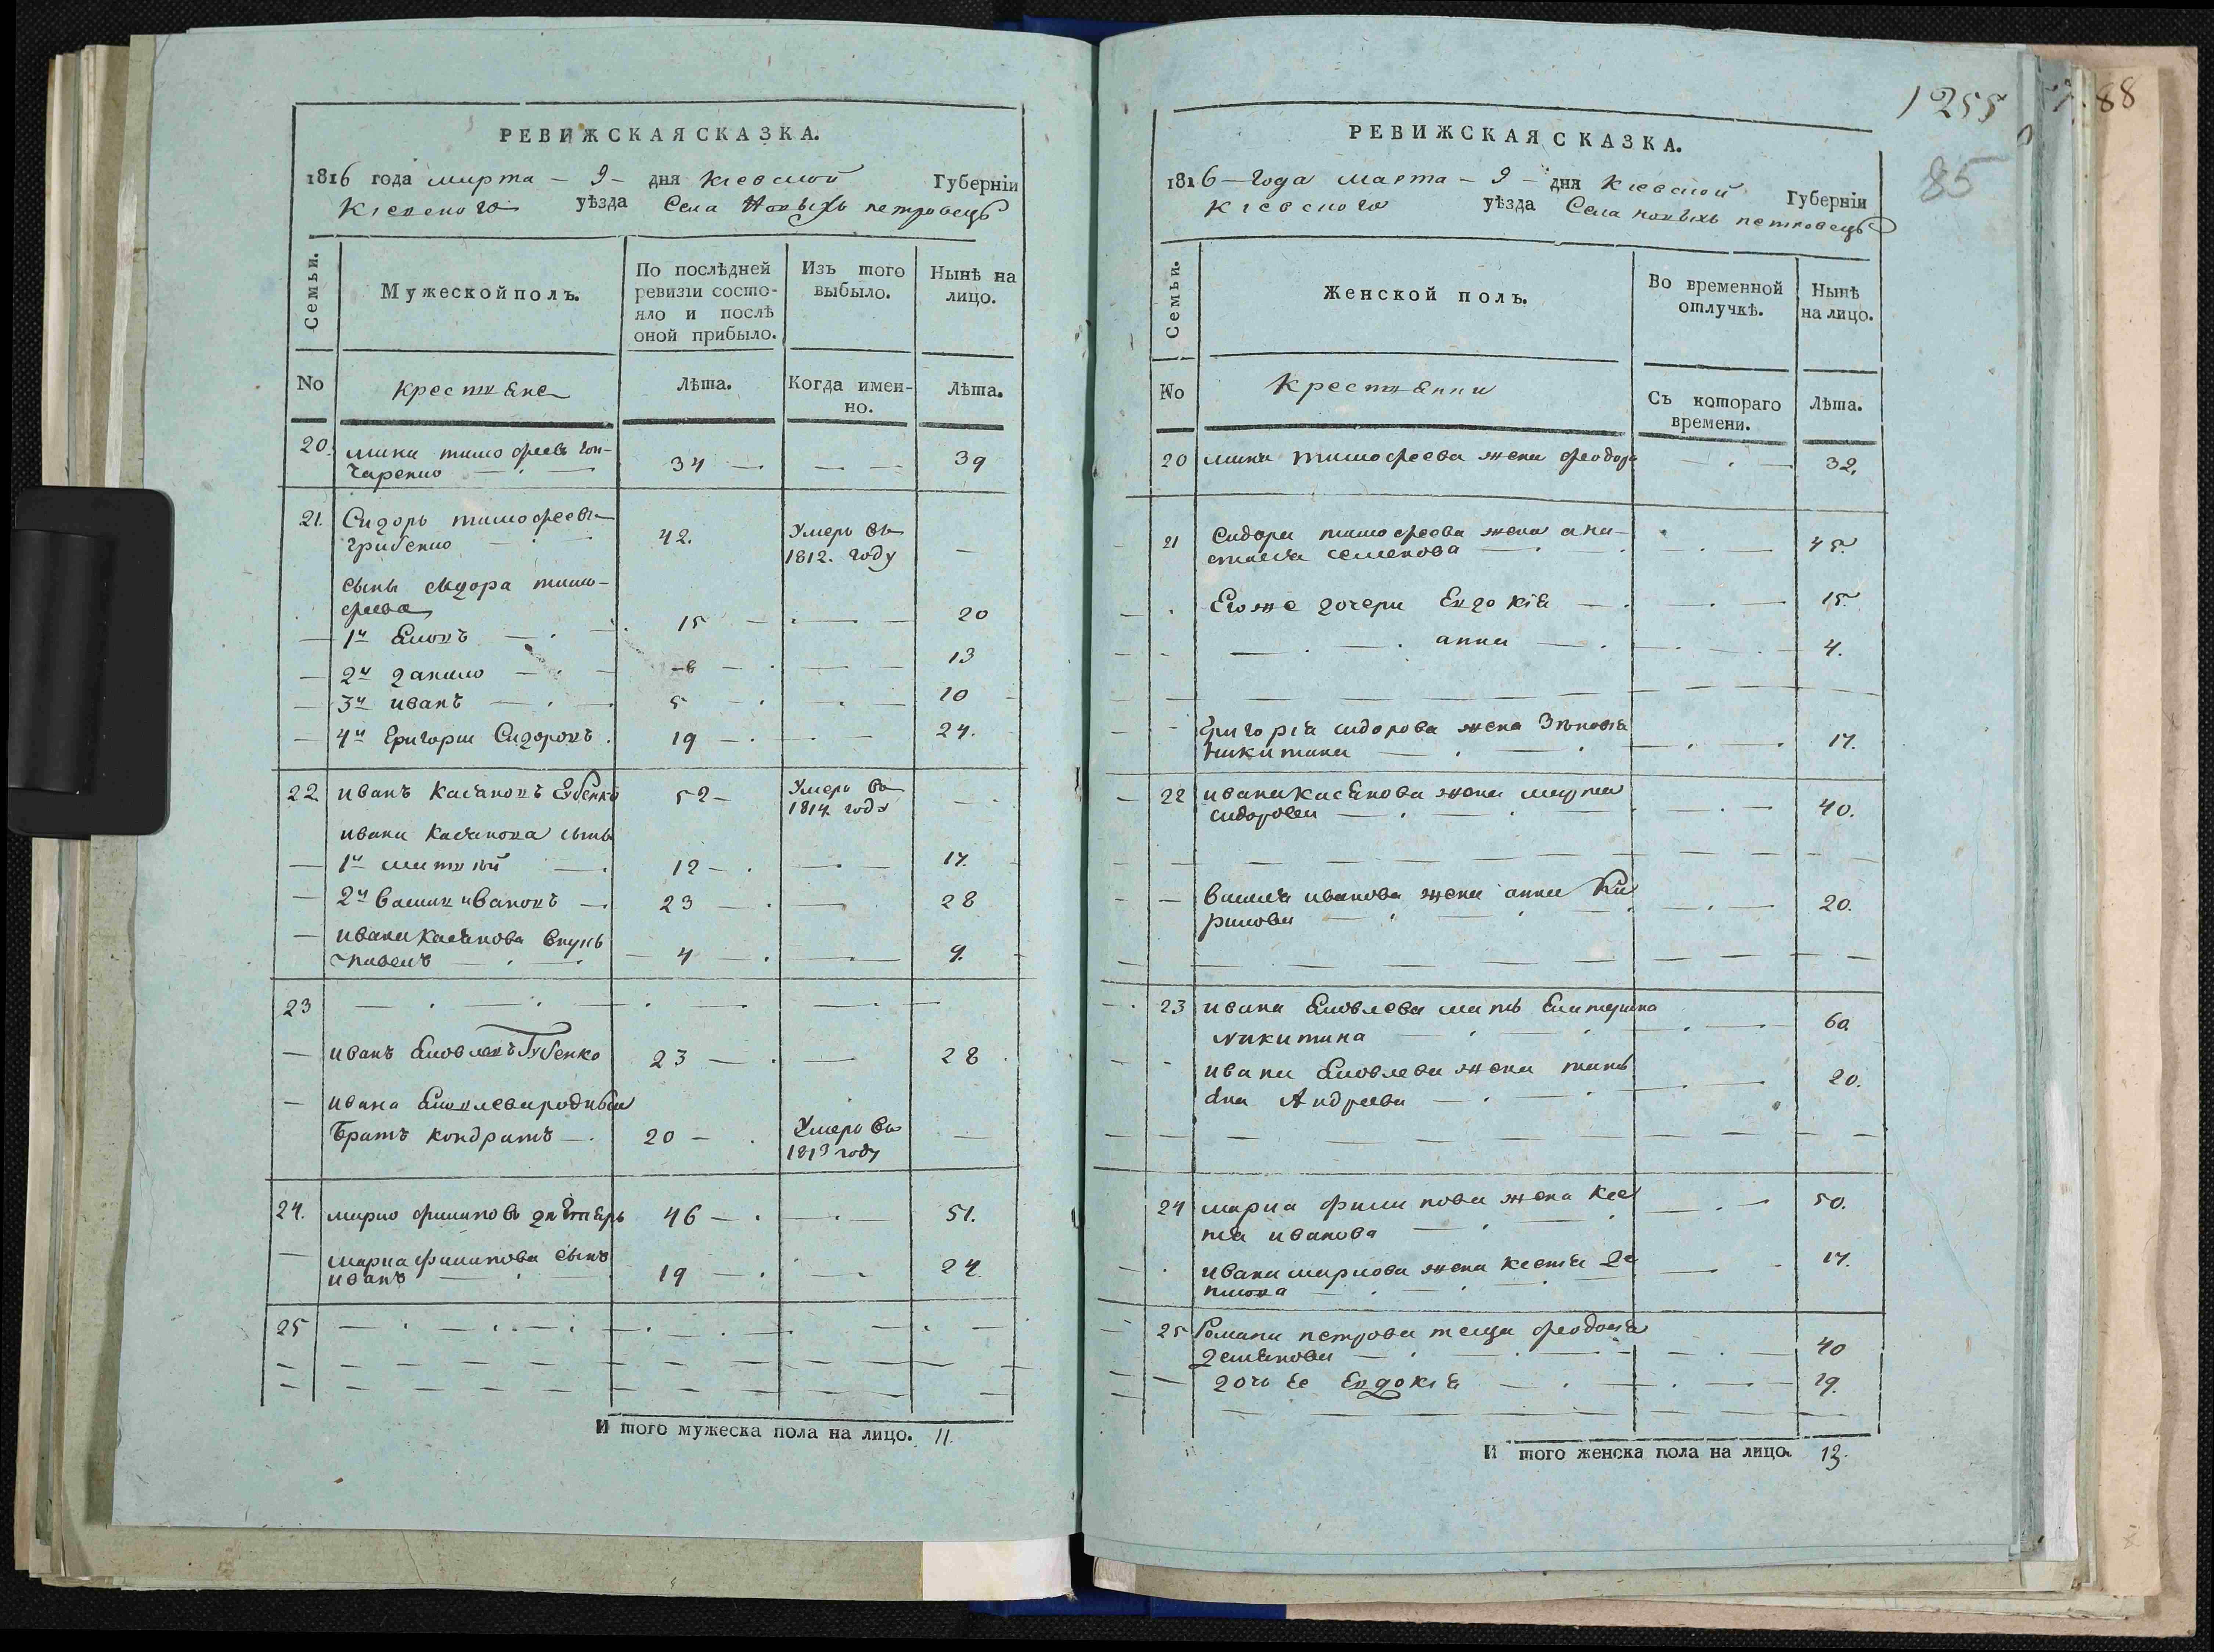 РЕВИЖСКАЯ СКАЗКА.
1816 года марта – 9 – дня Кіевской Губерніи
Кіевского уѣзда Села Новыхъ петровецъ
Семьи.
Мужеской полъ.
По послѣдней ревизіи состояло и послѣ оной прибыло.
Изъ того выбыло.
Нынѣ на лицо.
No крестяне Лѣта. Когда имен- Лѣта.
но.
20. мина тимофеевъ гон-
чаренко 34 39
21. Сидоръ тимофеевъ 42. Умеръ въ
1812. году
сыны сидора тимо-
феева
1й Яковъ 15 20
2й данило 13
3й иванъ 5 10
4й Григории Сидоровъ. 19 24.
22. иванъ Касяновъ 52 Умеръ въ
1814 году
ивана Касянова сыны
1й 12 17.
2й василь ивановъ 23 28
ивана касянова внукъ
павелъ 4 9.
23
иванъ Яковлевъ Губенко 23 28
ивана Яковлева родный
братъ кондратъ 20 Умеръ въ
1813 году
24. марко филиповъ дегтяръ 46 51.
марка филипова сынъ
иванъ 19 24.
25
И того мужеска пола на лицо. 11.
1255
88
85
РЕВИЖСКАЯ СКАЗКА.
1816 – года марта – 9 – дня Кіевской Губерніи
Кіевского уѣзда Села новыхъ петровецъ
Семьи.
Женской полъ.
Во временной отлучкѣ.
Нынѣ на лицо.
No Крестянки Съ котораго Лѣта.
времени.
20 мина тимофеева жена феодора 32.
21 Сидора тимофеева жена ана-
стасія семенова 45.
Егоже дочери Евдокія 15.
анна 4.
Григорія сидорова жена Зѣновія
Никитина 17.
22 ивана Касянова жена марта
сидорова 40.
василя иванова жена анна Ки
рилова 20.
23 ивана Яковлева мать Екатерина
никитина 60.
ивана Яковлева жена татія
Андреева 20.
24 марка филипова жена Ксе
нія иванова 50.
ивана маркова жена ксенія да
нилова 17.
25 Романа петрова теща феодосія
демянова 40
дочь ее Евдокія 19.
И того женска пола на лицо. 13.